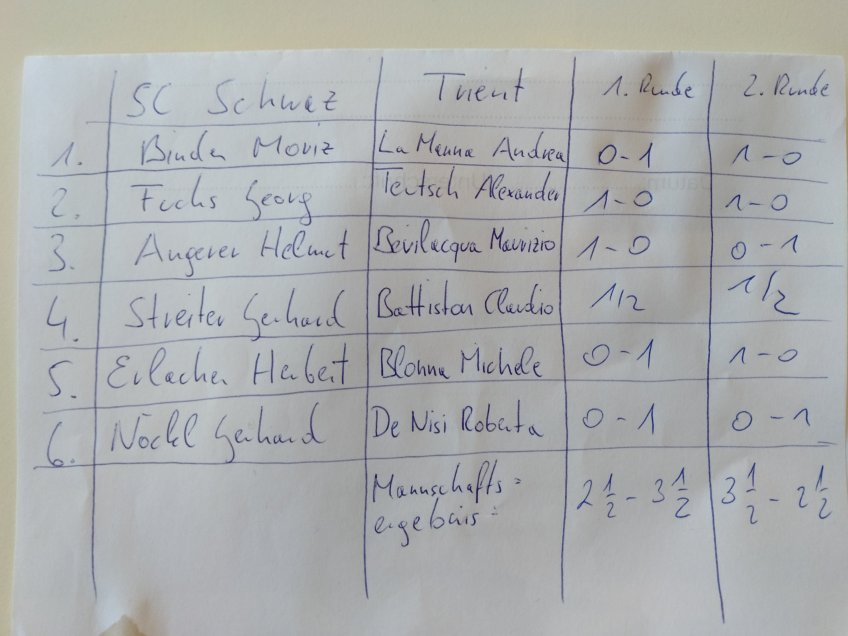 SC Schwaz Trient 1. Runde 2. Runde
1. Binder Moriz La Manna Andrea 0-1 1-0
2. Fuchs Georg Teutsch Alexander 1-0 1-0
3. Angerer Helmut Bevilacqua Maurizio 1-0 0-1
4. Streiter Gerhard Battiston Claudio 1/2 1/2
5. Erlacher Herbert Blonna Michele 0-1 1-0
6. Nöckl Gerhard De Nisi Roberta 0-1 0-1
Mannschafts= 2 1/2 - 3 1/2 3 1/2 - 2 1/2
ergebnis=